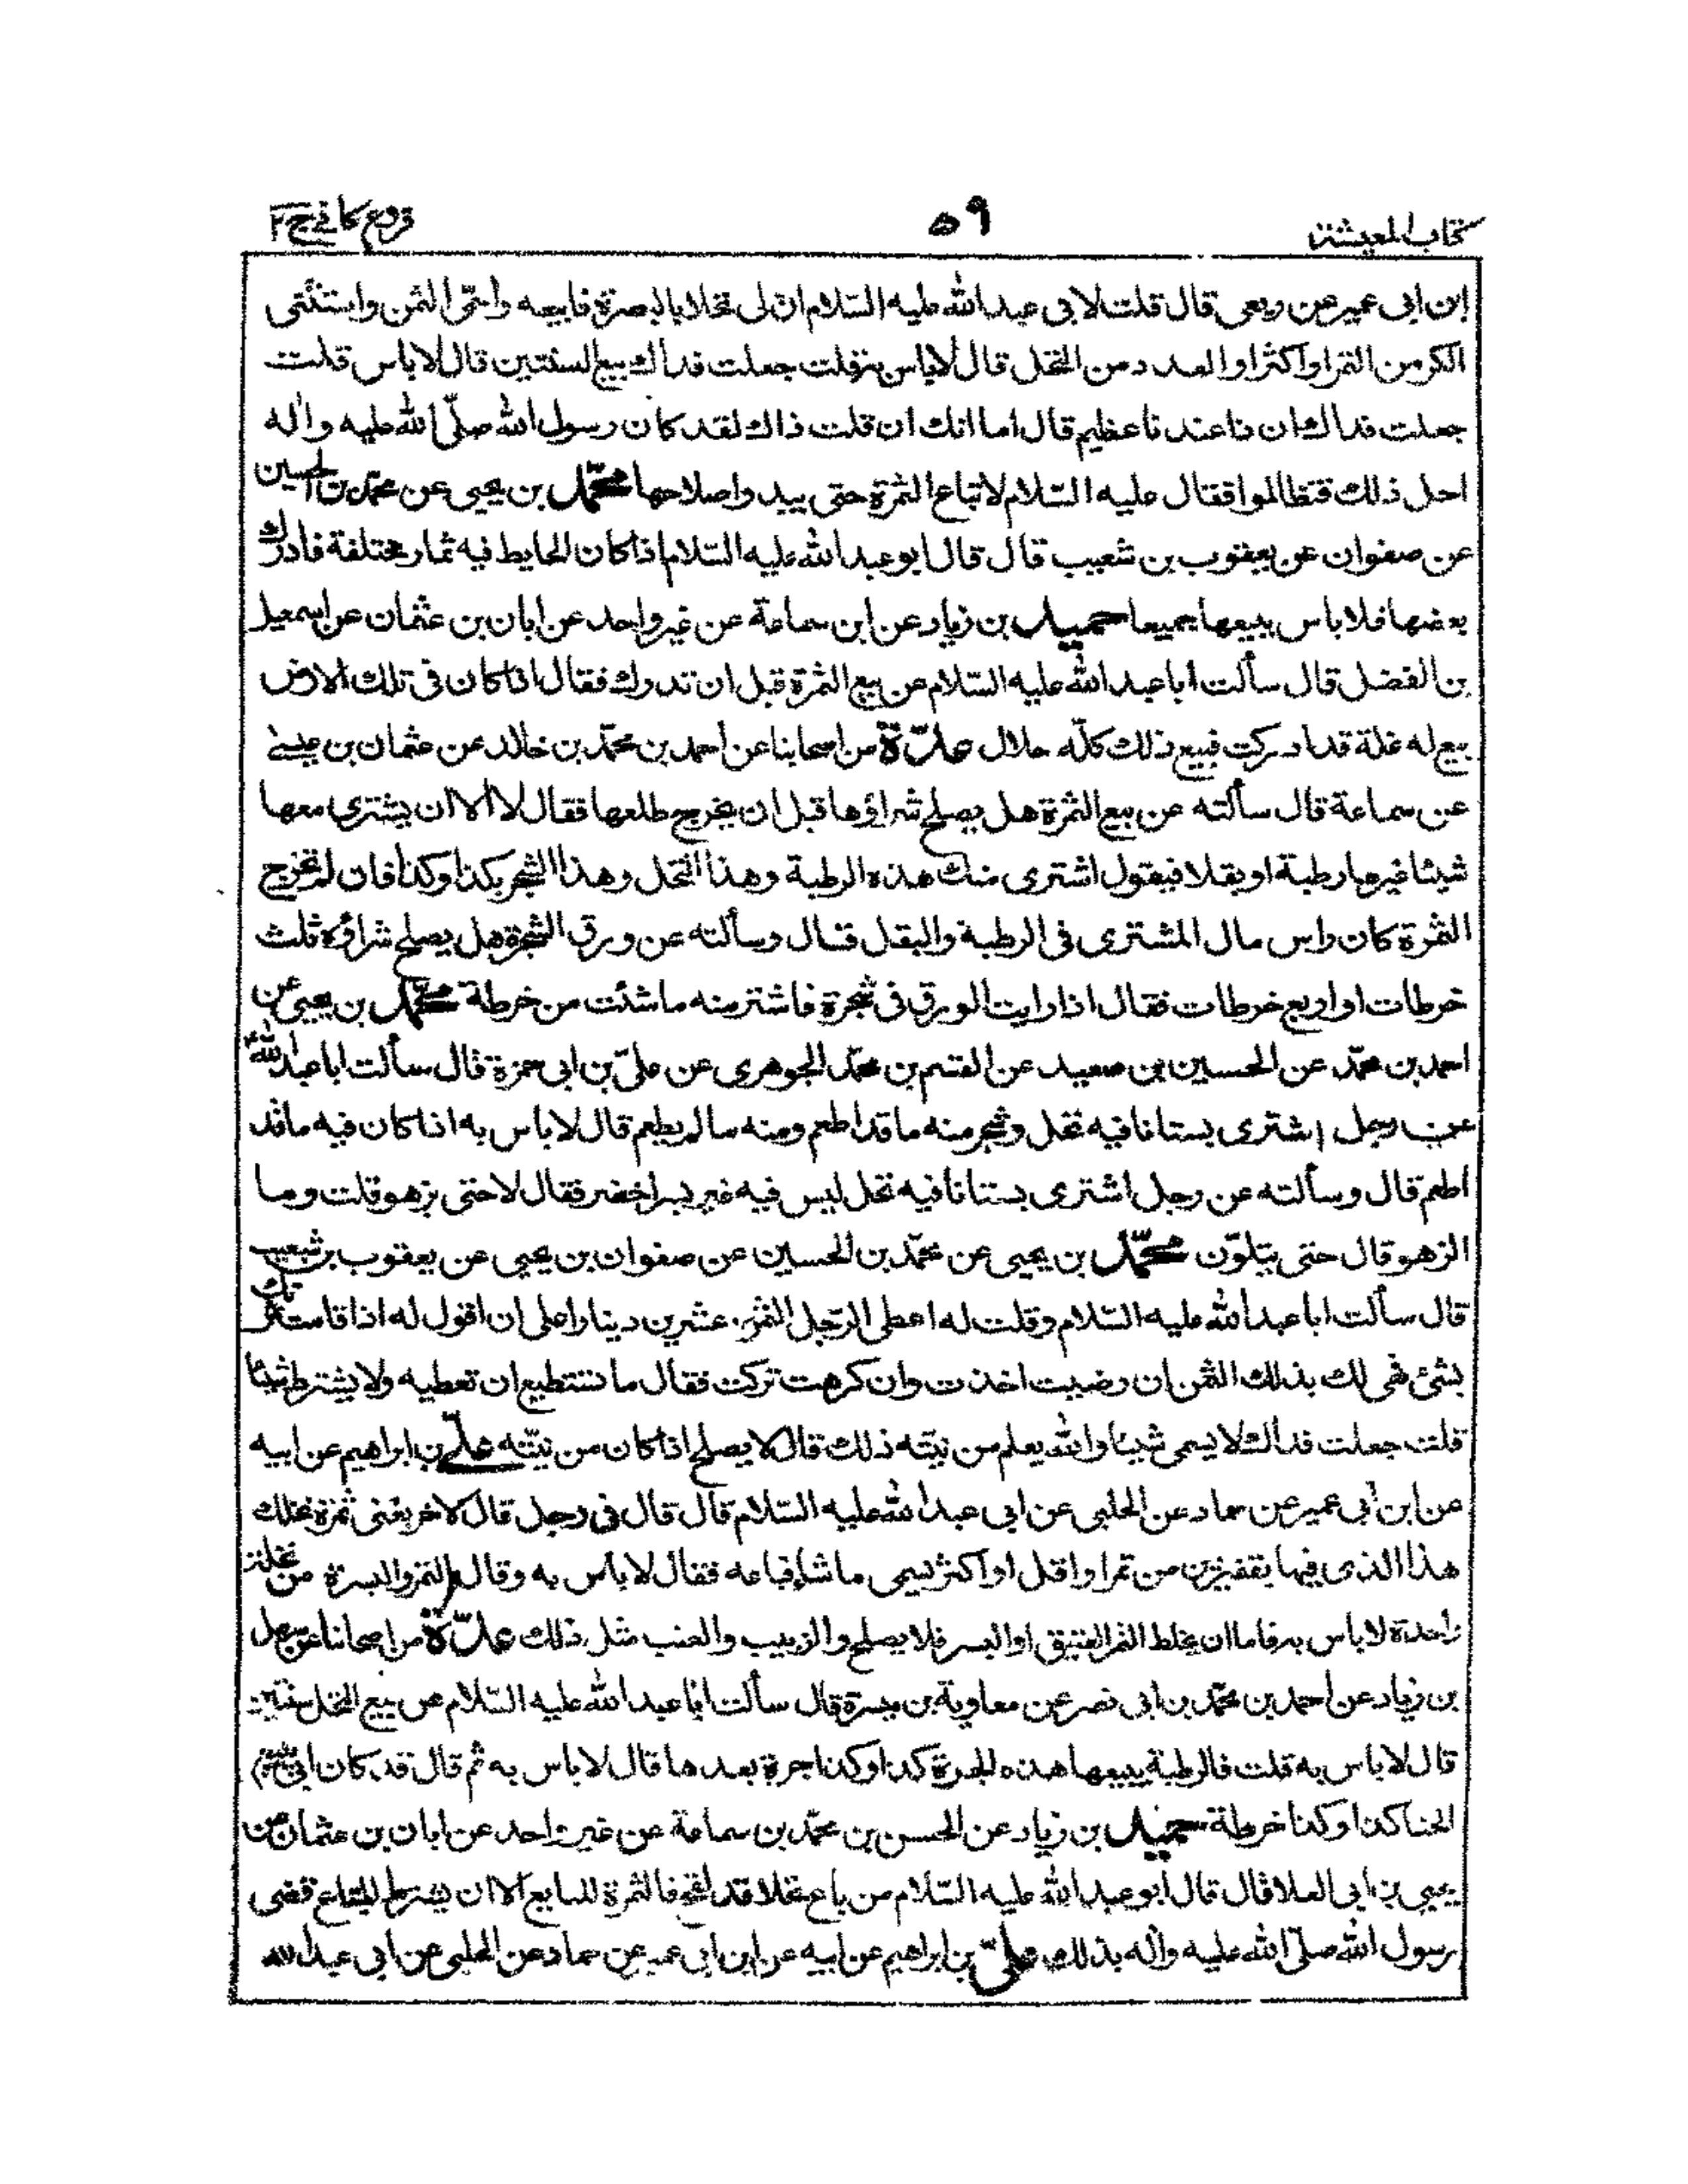 كتاب المعيشة
٥٩
فروع كافي ج٢
ابن ابى عمير عن ربعى قال قلت لابى عبدالله عليه السّلام ان لى نخلا بالبصرة فابيعه واسمّى الثمن واستثنى
الكر من التمر او اكثر او العدد من النخل قال لاباس به قلت جعلت فداك بيع السنتين قال لاباس قلت
جعلت فداك ان ذا عندنا عظيم قال اما انك ان قلت ذاك لقد كان رسول الله صلّى الله عليه واله
احل ذلك فتظالموا فقال عليه السّلام لا تباع الثمرة حتى يبدو اصلاحها محمّد بن يحيى عن محمّد بن الحسين
عن صفوان عن يعقوب بن شعيب قال قال ابو عبدالله عليه السّلام اذا كان الحايط فيه ثمار مختلفة فادرك
بعضها فلا باس ببيعها جميعا حميد بن زياد عن ابن سماعة عن غير واحد عن ابان بن عثمان عن اسمعيل
بن الفضل قال سألت ابا عبدالله عليه السّلام عن بيع الثمرة قبل ان تدرك فقال اذا كان فى تلك الارض
بيع له غلة قد ادركت فبيع ذلك كلّه حلال عدّة من اصحابنا عن احمد بن محمّد بن خالد عن عثمان بن عيسى
عن سماعة قال سألته عن بيع الثمرة هل يصلح شراؤها قبل ان يخرج طلعها فقال لا الا ان يشترى معها
شيئا غيرها رطبة او بقلا فيقول اشترى منك هذه الرطبة وهذا النخل وهذا الشجر بكذا وكذا فان لم تخرج
الثمرة كان راس مال المشترى فى الرطبة والبقل قال وسألته عن ورق الشجرة هل يصلح شراؤه ثلث
خرطات او اربع خرطات فقال اذا رايت الورق فى شجرة فاشتر منه ما شئت من خرطة محمّد بن يحيى عن
احمد بن محمّد عن الحسين بن سعيد عن القسم بن محمّد الجوهرى عن علىّ بن ابى حمزة قال سألت ابا عبدالله ع
عن رجل اشترى بستانا فيه نخل وشجر منه ما قد اطعم ومنه ما لم يطعم قال لا باس به اذا كان فيه ما قد
اطعم قال وسألته عن رجل اشترى بستانا فيه نخل ليس فيه غير بسر اخضر فقال لا حتى يزهو قلت وما
الزهو قال حتى يتلوّن محمّد بن يحيى عن محمّد بن الحسين عن صفوان بن يحيى عن يعقوب بن شعيب
قال سألت ابا عبدالله عليه السّلام وقلت له اعطى الرّجل الثمن عشرين دينارا على ان اقول له اذا قامت ثمرتك
بشئ فهى لك بذلك الثمن ان رضيت اخذت وان كرهت تركت فقال ما تستطيع ان تعطيه ولا يشترط شيئا
قلت جعلت فداك لا يسمى شيئا والله يعلم من نيّته ذلك قال لا يصلح اذا كان من نيّته علىّ بن ابراهيم عن ابيه
عن ابن ابى عمير عن حماد عن الحلبى عن ابى عبدالله عليه السّلام قال قال فى رجل قال لاخر بعنى ثمرة نخلك
هذا الذى فيها بقفيزين من تمر او اقل او اكثر يسمى ما شاء فباعه فقال لا باس به وقال التمر والبسرة من نخلة
واحدة لا باس به فاما ان يخلط التمر العتيق او البسر فلا يصلح والزبيب والعنب مثل ذلك عدّة من اصحابنا عن سهل
بن زياد عن احمد بن محمّد بن ابى نصر عن معاوية بن ميسرة قال سألت ابا عبدالله عليه السّلام عن بيع النخل سنتين
قال لا باس به قلت فالرطبة يبيعها هذه الجزة كذا وكذا جزة بعدها قال لا باس به ثم قال قد كان ابى يبيع
الحنا كذا وكذا خرطة حميد بن زياد عن الحسن بن محمّد بن سماعة عن غير واحد عن ابان بن عثمان عن
يحيى بن ابى العلا قال قال ابو عبدالله عليه السّلام من باع نخلا قد لقح فالثمرة للبايع الا ان يشترط المبتاع قضى
رسول الله صلّى الله عليه واله بذلك علىّ بن ابراهيم عن ابيه عن ابن ابى عمير عن حماد عن الحلبى عن ابى عبدالله